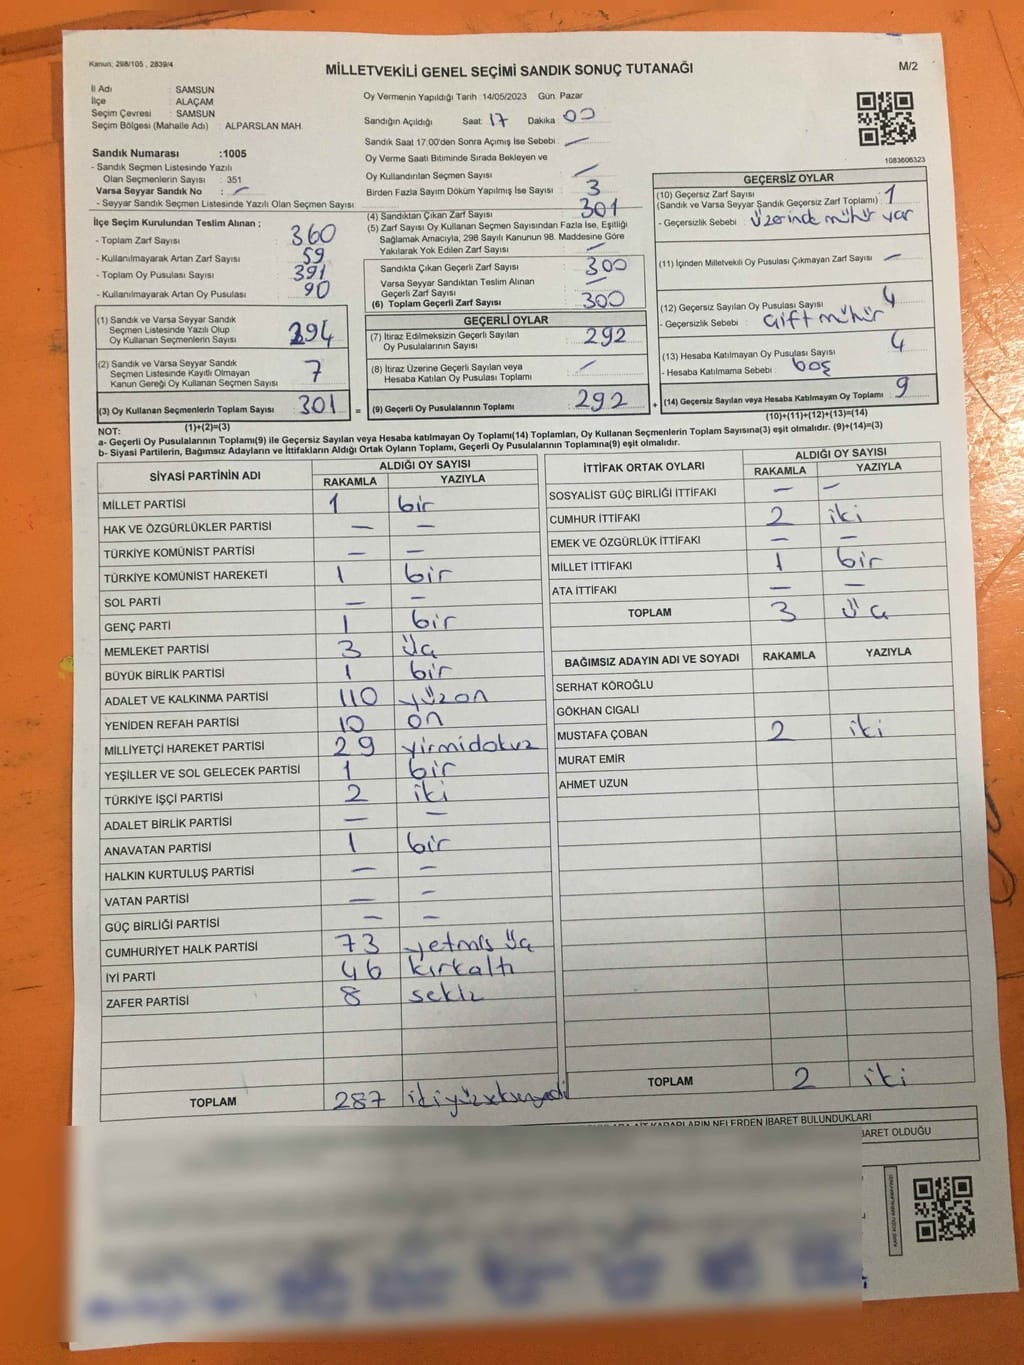 Kanun; 298/105 , 2839/4
MİLLETVEKİLİ GENEL SEÇİMİ SANDIK SONUÇ TUTANAĞI
M/2
İl Adı : SAMSUN
İlçe : ALAÇAM
Seçim Çevresi : SAMSUN
Seçim Bölgesi (Mahalle Adı) : ALPARSLAN MAH.
Oy Vermenin Yapıldığı Tarih :14/05/2023 Gün: Pazar
Sandığın Açıldığı Saat: 17 Dakika : 00
Sandık Saat 17.00'den Sonra Açımış İse Sebebi : —
Oy Verme Saati Bitiminde Sırada Bekleyen ve
Oy Kullandırılan Seçmen Sayısı : —
Birden Fazla Sayım Döküm Yapılmış İse Sayısı : 3
Sandık Numarası :1005
- Sandık Seçmen Listesinde Yazılı
Olan Seçmenlerin Sayısı : 351
Varsa Seyyar Sandık No : —
- Seyyar Sandık Seçmen Listesinde Yazılı Olan Seçmen Sayısı :
1083606323
İlçe Seçim Kurulundan Teslim Alınan ;
- Toplam Zarf Sayısı : 360
- Kullanılmayarak Artan Zarf Sayısı : 59
- Toplam Oy Pusulası Sayısı : 391
- Kullanılmayarak Artan Oy Pusulası : 90
(1) Sandık ve Varsa Seyyar Sandık
Seçmen Listesinde Yazılı Olup
Oy Kullanan Seçmenlerin Sayısı : 294
(2) Sandık ve Varsa Seyyar Sandık
Seçmen Listesinde Kayıtlı Olmayan
Kanun Gereği Oy Kullanan Seçmen Sayısı : 7
(3) Oy Kullanan Seçmenlerin Toplam Sayısı : 301
(1)+(2)=(3)
(4) Sandıktan Çıkan Zarf Sayısı : 301
(5) Zarf Sayısı Oy Kullanan Seçmen Sayısından Fazla İse, Eşitliği
Sağlamak Amacıyla, 298 Sayılı Kanunun 98. Maddesine Göre
Yakılarak Yok Edilen Zarf Sayısı : —
Sandıkta Çıkan Geçerli Zarf Sayısı : 300
Varsa Seyyar Sandıktan Teslim Alınan
Geçerli Zarf Sayısı : —
(6) Toplam Geçerli Zarf Sayısı : 300
GEÇERLİ OYLAR
(7) İtiraz Edilmeksizin Geçerli Sayılan
Oy Pusulalarının Sayısı : 292
(8) İtiraz Üzerine Geçerli Sayılan veya
Hesaba Katılan Oy Pusulası Toplamı : —
= (9) Geçerli Oy Pusulalarının Toplamı : 292 +
GEÇERSİZ OYLAR
(10) Geçersiz Zarf Sayısı
(Sandık ve Varsa Seyyar Sandık Geçersiz Zarf Toplamı) : 1
- Geçersizlik Sebebi : üzerinde mühür var
(11) İçinden Milletvekili Oy Pusulası Çıkmayan Zarf Sayısı : —
(12) Geçersiz Sayılan Oy Pusulası Sayısı : 4
- Geçersizlik Sebebi : Çift mühür
(13) Hesaba Katılmayan Oy Pusulası Sayısı : 4
- Hesaba Katılmama Sebebi : boş
(14) Geçersiz Sayılan veya Hesaba Katılmayan Oy Toplamı : 9
(10)+(11)+(12)+(13)=(14)
NOT:
a- Geçerli Oy Pusulalarının Toplamı(9) ile Geçersiz Sayılan veya Hesaba katılmayan Oy Toplamı(14) Toplamları, Oy Kullanan Seçmenlerin Toplam Sayısına(3) eşit olmalıdır. (9)+(14)=(3)
b- Siyasi Partilerin, Bağımsız Adayların ve İttifakların Aldığı Ortak Oyların Toplamı, Geçerli Oy Pusulalarının Toplamına(9) eşit olmalıdır.
SİYASİ PARTİNİN ADI ALDIĞI OY SAYISI
RAKAMLA YAZIYLA
MİLLET PARTİSİ 1 bir
HAK VE ÖZGÜRLÜKLER PARTİSİ — —
TÜRKİYE KOMÜNİST PARTİSİ — —
TÜRKİYE KOMÜNİST HAREKETİ 1 bir
SOL PARTİ — —
GENÇ PARTİ 1 bir
MEMLEKET PARTİSİ 3 üç
BÜYÜK BİRLİK PARTİSİ 1 bir
ADALET VE KALKINMA PARTİSİ 110 yüzon
YENİDEN REFAH PARTİSİ 10 on
MİLLİYETÇİ HAREKET PARTİSİ 29 yirmidokuz
YEŞİLLER VE SOL GELECEK PARTİSİ 1 bir
TÜRKİYE İŞÇİ PARTİSİ 2 iki
ADALET BİRLİK PARTİSİ — —
ANAVATAN PARTİSİ 1 bir
HALKIN KURTULUŞ PARTİSİ — —
VATAN PARTİSİ — —
GÜÇ BİRLİĞİ PARTİSİ — —
CUMHURİYET HALK PARTİSİ 73 yetmiş üç
İYİ PARTİ 46 kırkaltı
ZAFER PARTİSİ 8 sekiz
TOPLAM 287 ikiyüzseksenyedi
İTTİFAK ORTAK OYLARI ALDIĞI OY SAYISI
RAKAMLA YAZIYLA
SOSYALİST GÜÇ BİRLİĞİ İTTİFAKI — —
CUMHUR İTTİFAKI 2 iki
EMEK VE ÖZGÜRLÜK İTTİFAKI — —
MİLLET İTTİFAKI 1 bir
ATA İTTİFAKI — —
TOPLAM 3 üç
BAĞIMSIZ ADAYIN ADI VE SOYADI RAKAMLA YAZIYLA
SERHAT KÖROĞLU
GÖKHAN CIGALI
MUSTAFA ÇOBAN 2 iki
MURAT EMİR
AHMET UZUN
TOPLAM 2 iki
KARARLARIN NELERDEN İBARET BULUNDUKLARI
İBARET OLDUĞU